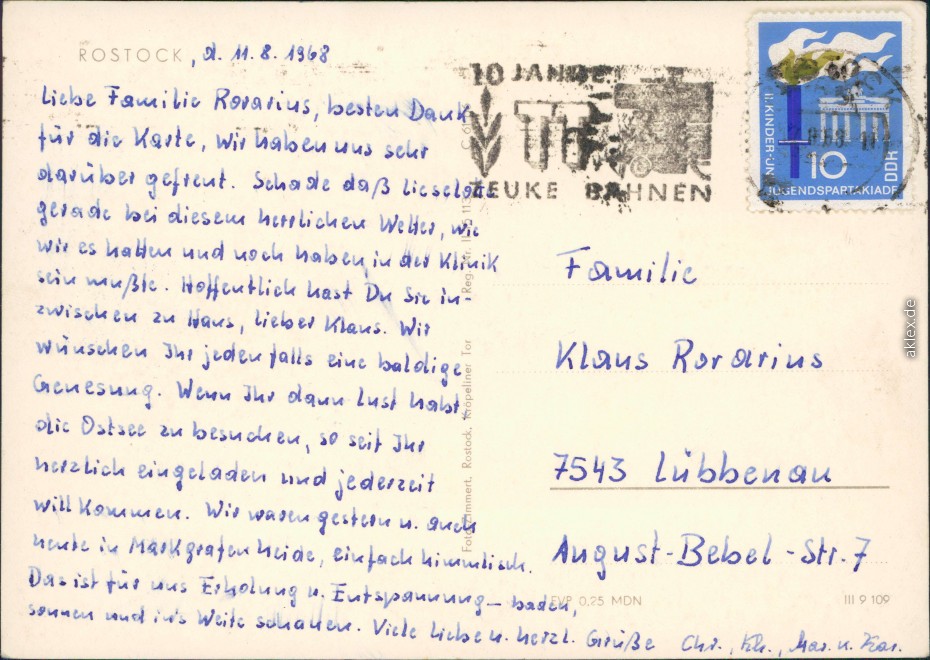 ROSTOCK, d. 11.8.1968
Liebe Familie Rorarius, besten Dank
für die Karte, wir haben uns sehr
darüber gefreut. Schade daß Lieselotte
gerade bei diesem herrlichen Wetter, wie
wir es hatten und noch haben, in der Klinik
sein mußte. Hoffentlich hast Du Sie in-
zwischen zu Haus, lieber Klaus. Wir
wünschen Ihr jedenfalls eine baldige
Genesung. Wenn Ihr dann Lust habt,
die Ostsee zu besuchen, so seit Ihr
herzlich eingeladen und jederzeit
willkommen. Wir waren gestern u. auch
heute in Markgrafenheide, einfach himmlisch.
Das ist für uns Erholung u. Entspannung – baden,
sonnen und in's Weite schauen. Viele liebe u. herzl. Grüße Chr., Kh., Mar. u. Kar.
10 JAHRE
TT
ZEUKE BAHNEN
II. KINDER- UN
JUGENDSPARTAKIADE
10
DDR
Familie
Klaus Rorarius
7543 Lübbenau
August-Bebel-Str. 7
Foto: Zimmert, Rostock, Kröpeliner Tor
EVP 0,25 MDN
III 9 109
aklex.de